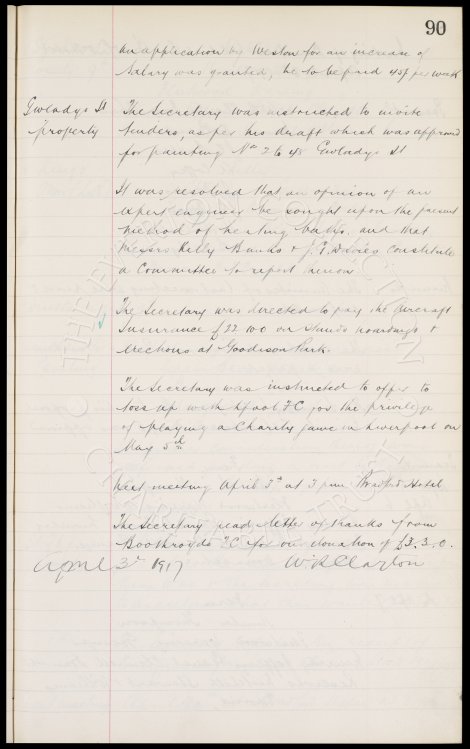 90
An application by Weston for an increase of
Salary was granted, he to be paid 45/- per week
Gwladys St
property
The Secretary was instructed to invite
tenders, as per his draft which was approved
for painting Nos 2 to 48 Gwladys St
It was resolved that an opinion of an
expert engineer be sought upon the present
method of heating baths, and that
Messrs Kelly Banks & J. E. Davies constitute
a Committee to report thereon
The Secretary was directed to pay the aircraft
Insurance £22.10.0 on stands hoardings &
erections at Goodison Park.
The Secretary was instructed to offer to
toss up with Lpool FC for the privilege
of playing a Charity game in Liverpool on
May 5th
Next meeting April 3rd at 3 p.m. Hotel
The Secretary read letter of thanks from
FC for our donation of £3.3.0.
April 3rd 1917
W. R. Clayton